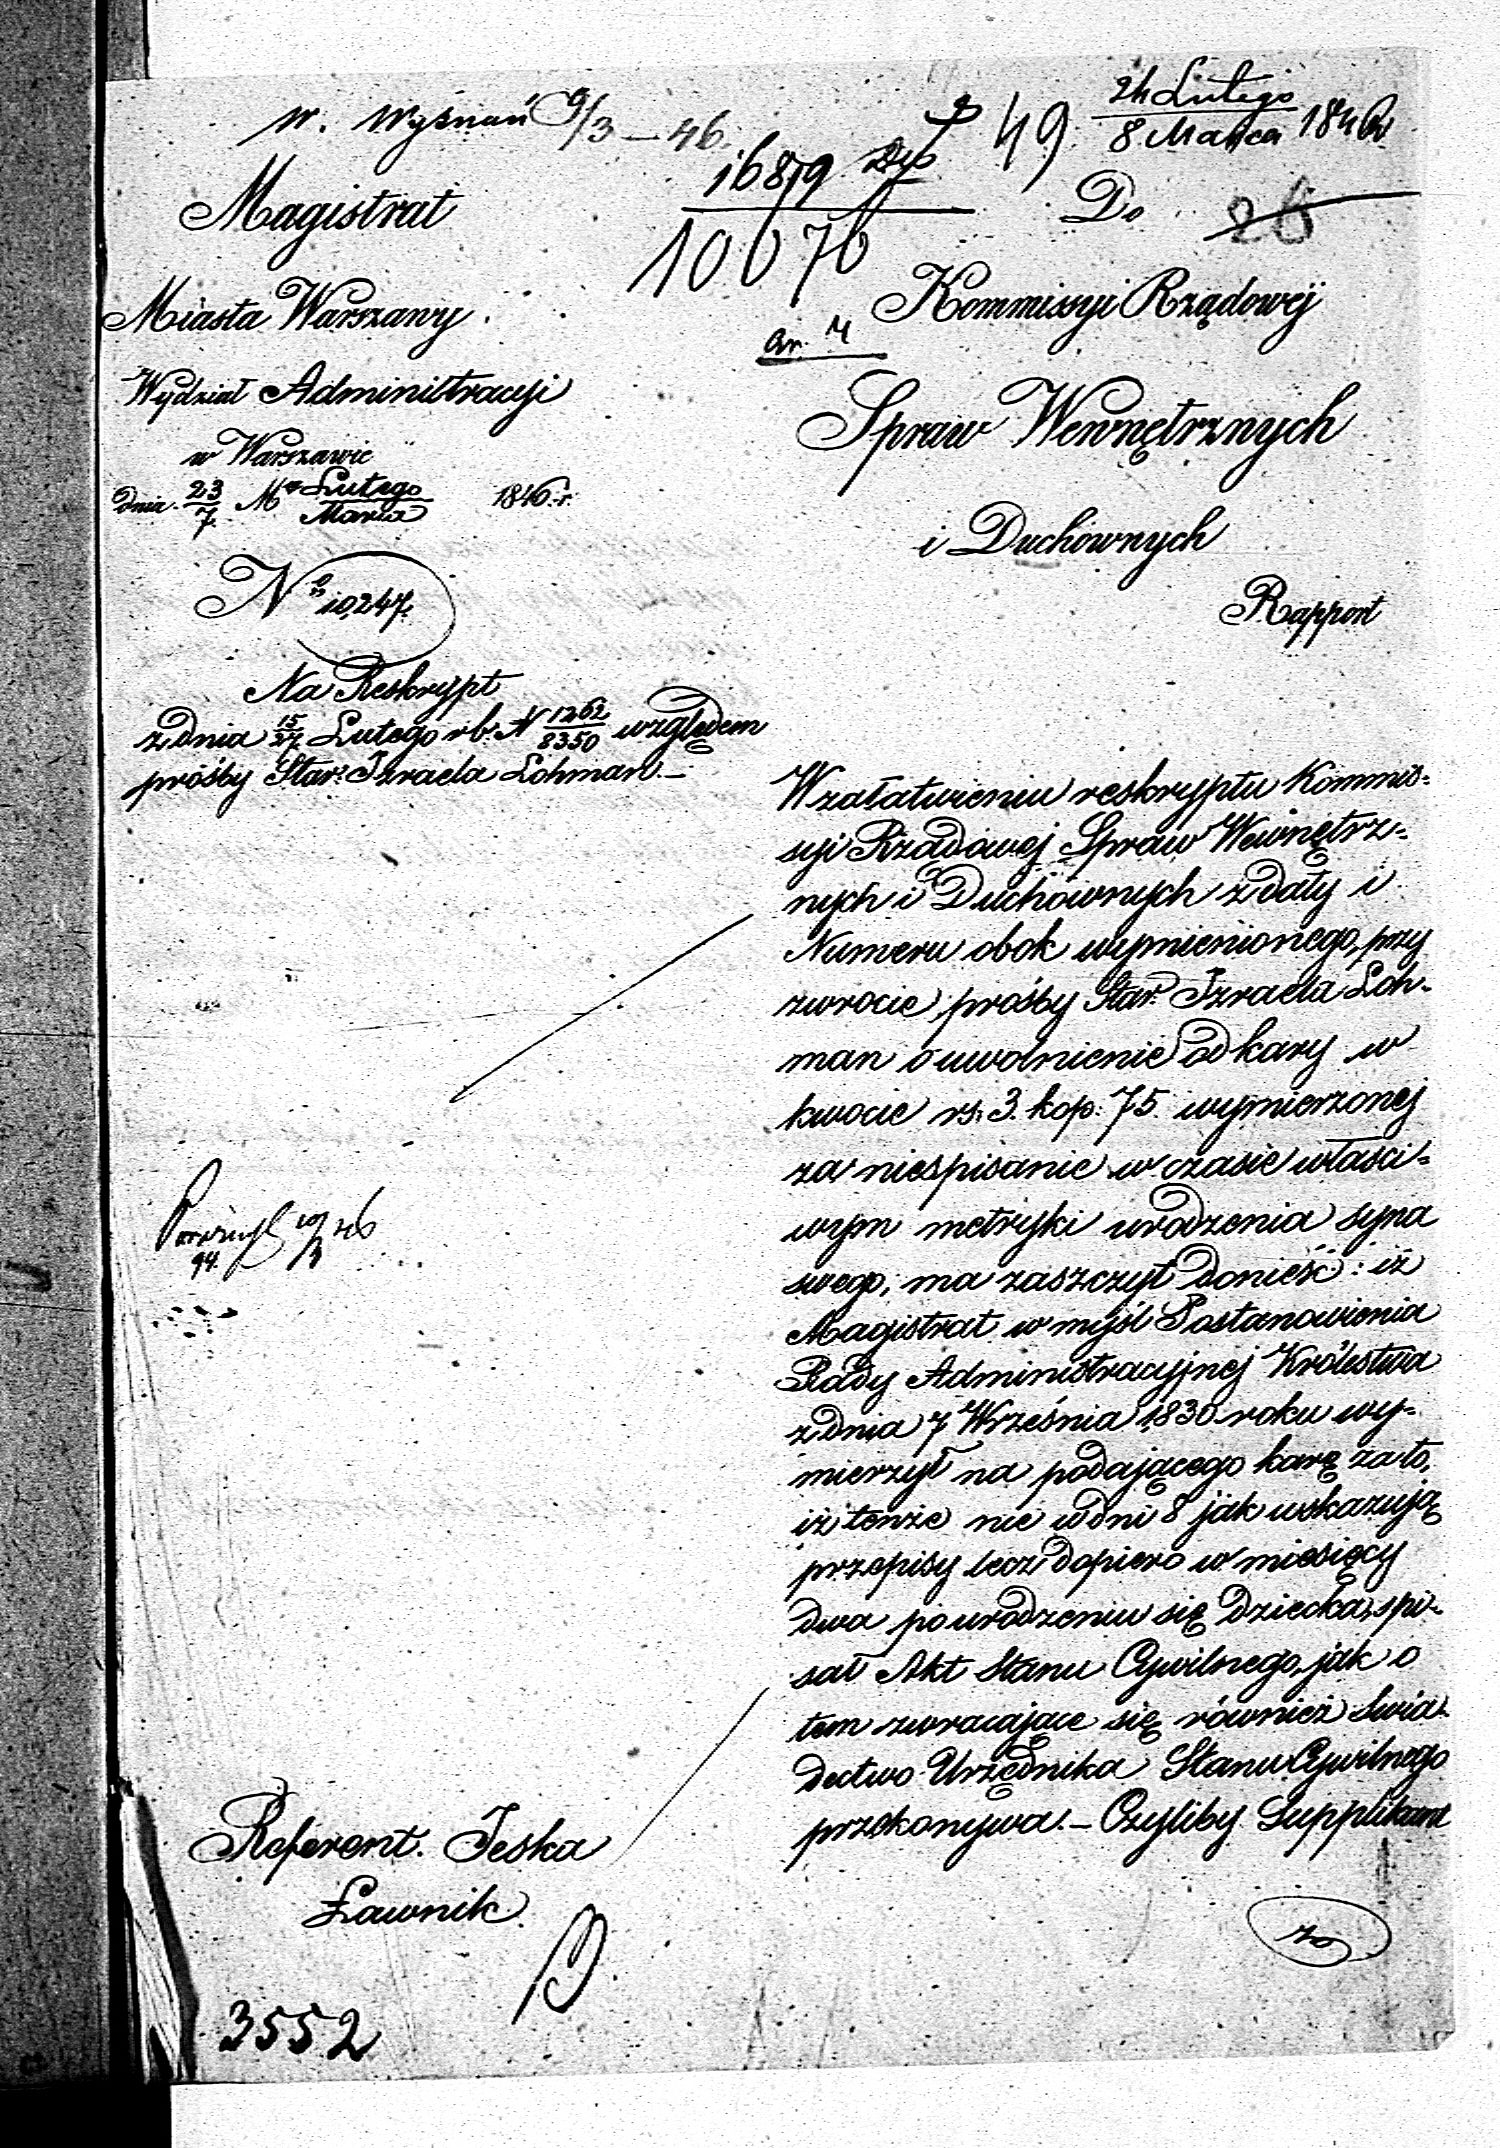 w. Wyznań 9/3 – 46.
24 Lutego
49 8 Marca 1846
16819
10676
26
ar. 4
Magistrat
Miasta Warszawy.
Wydział Administracyi
w Warszawie
dnia 23/7 Mca Lutego/Marca 1846 r.
No 10,247.
Na Reskrypt
z dnia 15/27 Lutego r b. N 1262/8350 względem
prośby Star. Izraela Lohman. –
Do
Kommissyi Rządowéj
Spraw Wewnętrznych
i Duchównych
Rapport
W załatwieniu reskryptu Kommis=
syi Rządowej Spraw Wewnętrz=
nych i Duchównych z daty i
Numeru obok wymienionego, przy
zwrocie prośby Star. Izraela Loh=
man o uwolnienie od kary w
kwocie rs. 3. kop: 75 wymierzonej
za niespisanie w czasie właści=
wym metryki urodzenia syna
swego, ma zaszczyt donieść: iż
Magistrat w myśl Postanowienia
Rady Administracyjnej Królestwa
z dnia 7 Września 1830 roku wy=
mierzył na podającego karę za to,
iż tenże nie w dni 8 jak wskazują
przepisy lecz dopiero w miesięcy
dwa po urodzeniu się dziecka, spi=
sał Akt Stanu Cywilnego, jak o
tem zwracające się również świa=
dectwo Urzędnika Stanu Cywilnego
przekonywa. – Czyliby Supplikant
94. 10/3 46
Referent. Jeska
Ławnik.
za
3552